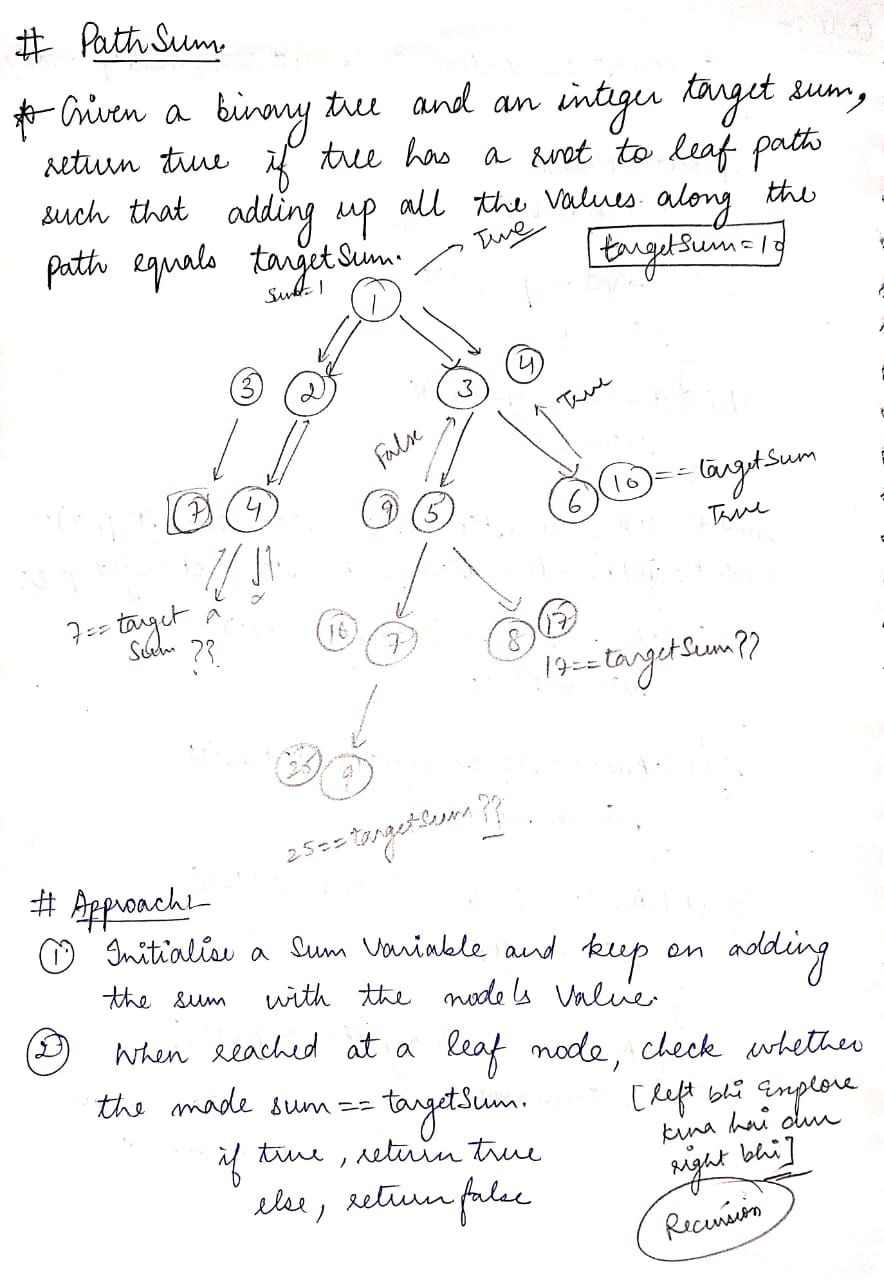 # Path Sum
* Given a binary tree and an integer target sum,
return true if tree has a root to leaf path
such that adding up all the values along the
path equals targetSum.
True
targetSum = 10
Sum=1
1
3 2
3 4
False
True
7 4
9 5
6 10 == targetSum
True
7 == target
Sum ??
16 7
8 17
17 == targetSum ??
25 9
25 == targetSum ??
# Approach:-
1 Initialise a Sum Variable and keep on adding
the sum with the node's Value.
2 When reached at a leaf node, check whether
the made sum == targetSum.
if true, return true
else, return false
[left bhi Explore
krna hai aur
right bhi]
Recursion